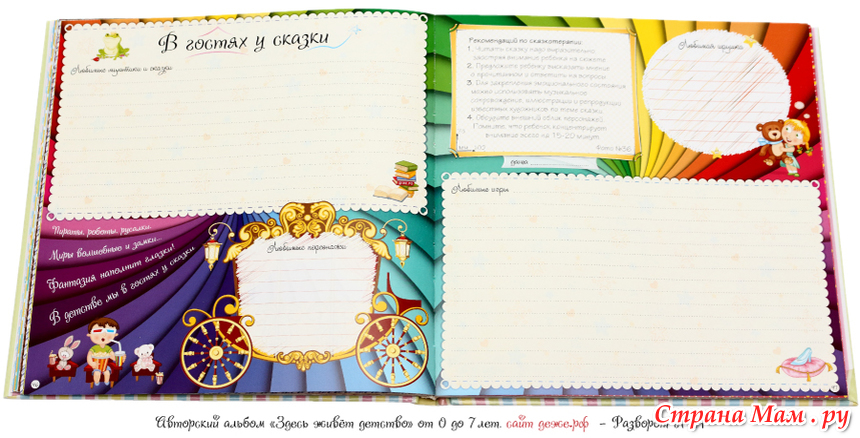 В гостях у сказки
Любимые мультики и сказки
Рекомендации по сказкотерапии
1. Читать сказку надо выразительно,
заостряя внимание ребенка на сюжете
2. Предложите ребенку высказать мнение
о прочитанном и ответить на вопросы
3. Для закрепления эмоционального состояния
можно использовать музыкальное
сопровождение, иллюстрации и репродукции
известных художников по этой сказке
4. Обсудите внешний облик персонажей.
Помните, что ребенок концентрирует
внимание всего на 15-20 минут
Фото №36
дата
Любимая игрушка
Любимые игры
Пираты, роботы, русалки,
Миры волшебные и замки...
Фантазия наполнит глазки!
В детстве мы в гостях у сказки
Любимые персонажи
Авторский альбом «Здесь живёт детство» от 0 до 7 лет. сайт деже.рф - Разворот
Страна Мам.ру